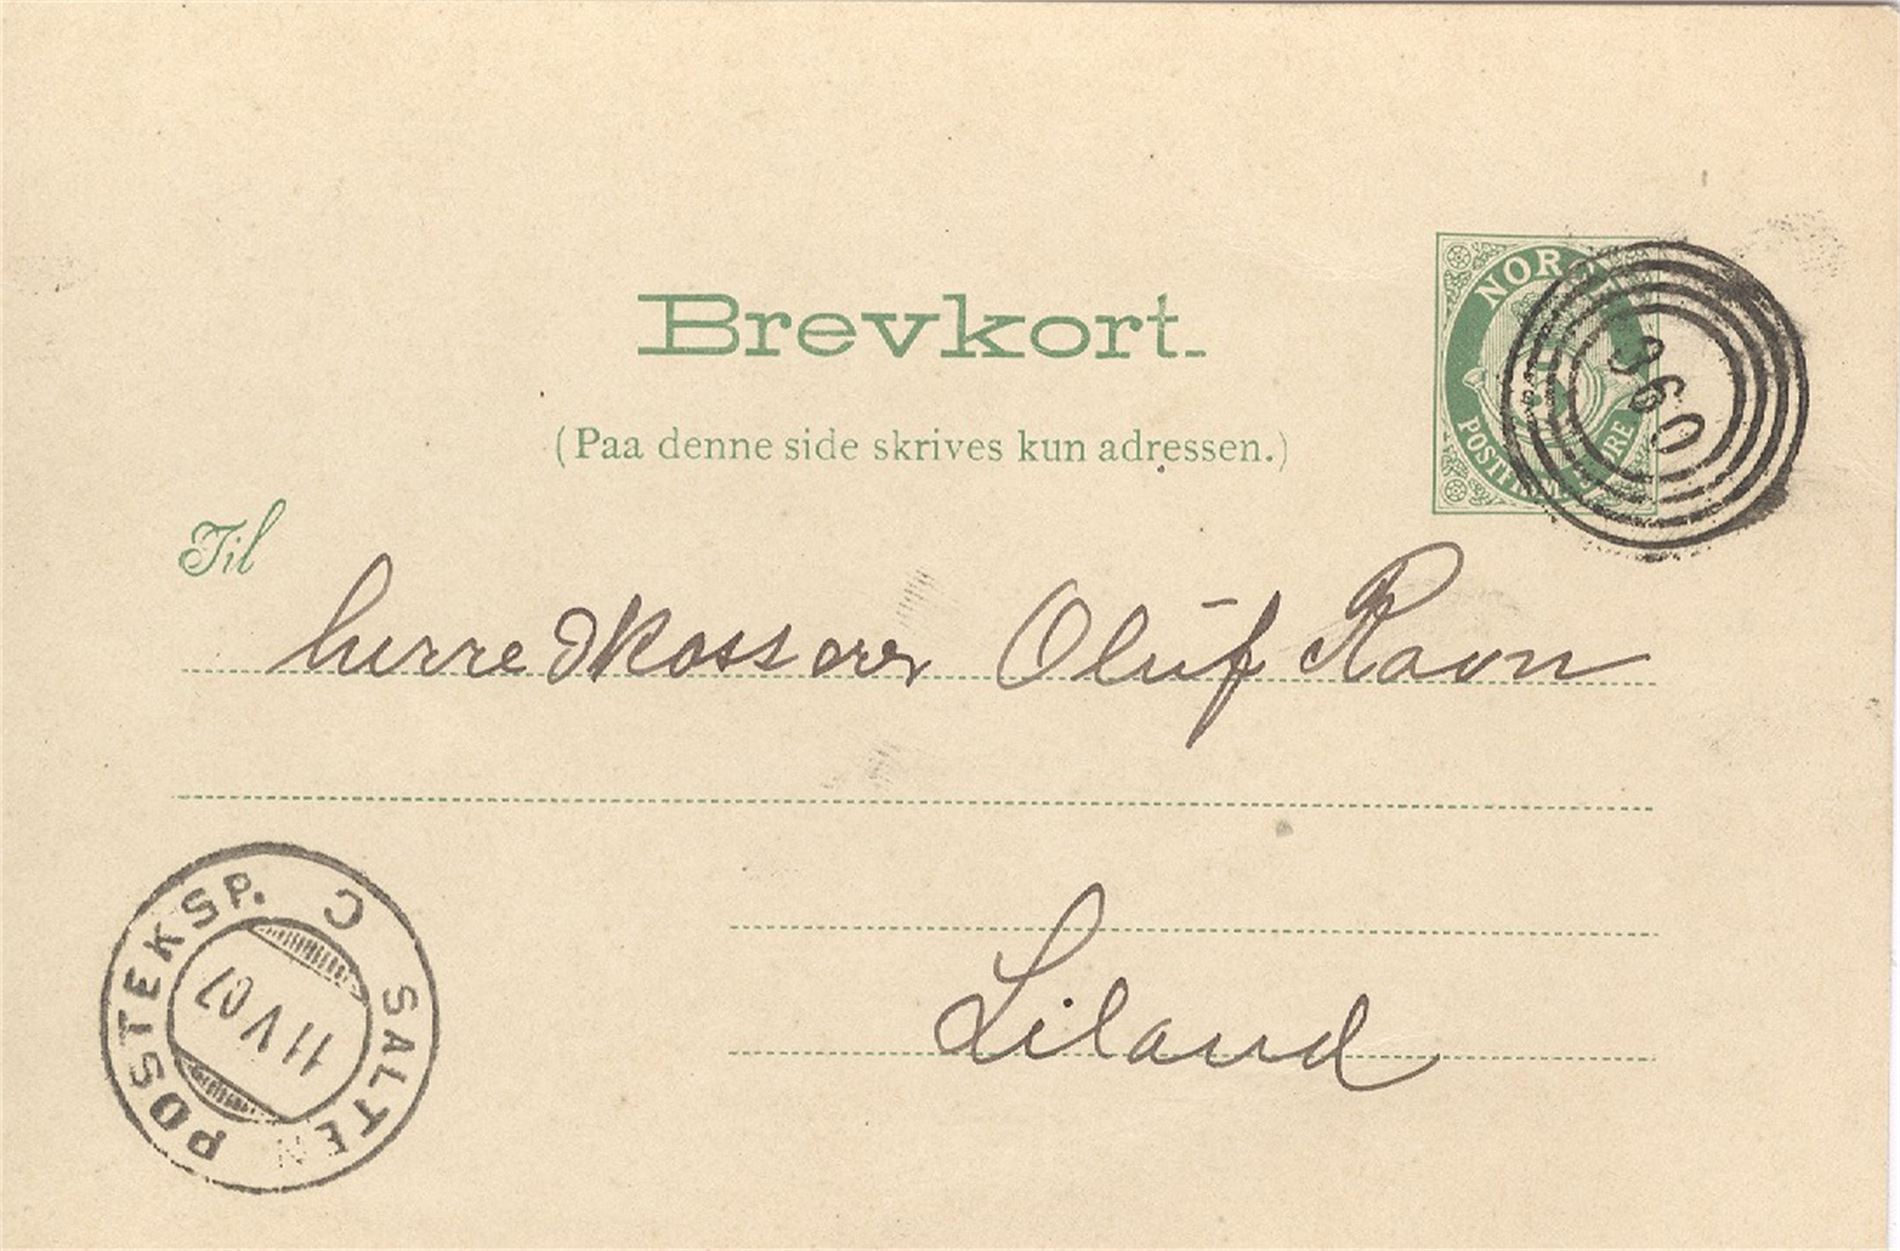 Brevkort.
(Paa denne side skrives kun adressen.)
NORGE
POSTFRIM. ØRE
360
Til
herredskasserer Oluf Ravn
Liland
POSTEKSP. C SALTEN
11 V 07